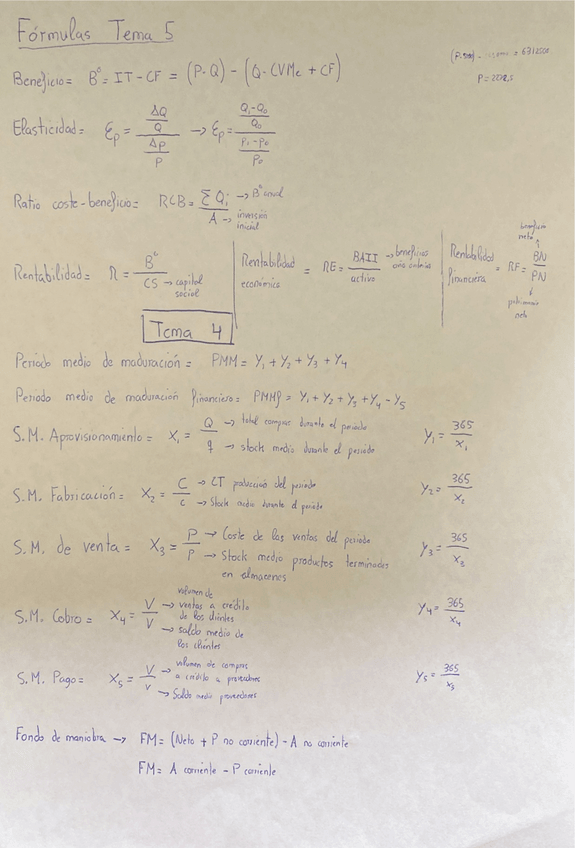 Fórmulas Tema 5
Beneficio = Bº = IT - CF = (P·Q) - (Q·CVMe + CF)
= 6312500
P = 2272,5
Elasticidad = Ep = (ΔQ/Q)/(ΔP/P) → Ep = ((Q1-Q0)/Q0)/((P1-P0)/P0)
Ratio coste-beneficio = RCB = ΣQi/A
→ Bº anual
→ inversión inicial
Rentabilidad = R = Bº/CS → capital social
Rentabilidad económica = RE = BAII/activo → beneficios
Rentabilidad financiera = RF = BN/PN
beneficio neto
patrimonio neto
Tema 4
Periodo medio de maduración = PMM = Y1 + Y2 + Y3 + Y4
Periodo medio de maduración financiero = PMMf = Y1 + Y2 + Y3 + Y4 - Y5
S.M. Aprovisionamiento = X1 = Q/q
→ total compras durante el periodo
→ stock medio durante el periodo
Y1 = 365/X1
S.M. Fabricación = X2 = C/c
→ CT producción del periodo
→ Stock medio durante el periodo
Y2 = 365/X2
S.M. de venta = X3 = P/p
→ Coste de las ventas del periodo
→ Stock medio productos terminados
en almacenes
Y3 = 365/X3
S.M. Cobro = X4 = V/v
volumen de
→ ventas a crédito
de los clientes
→ saldo medio de
los clientes
Y4 = 365/X4
S.M. Pago = X5 = V/v
→ volumen de compras
a crédito a proveedores
→ Saldo medio proveedores
Y5 = 365/X5
Fondo de maniobra → FM = (Neto + P no corriente) - A no corriente
FM = A corriente - P corriente